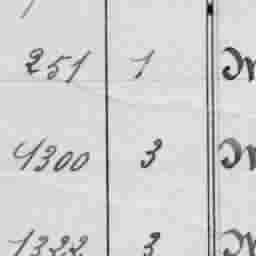 251 1
4300 3
1322 3